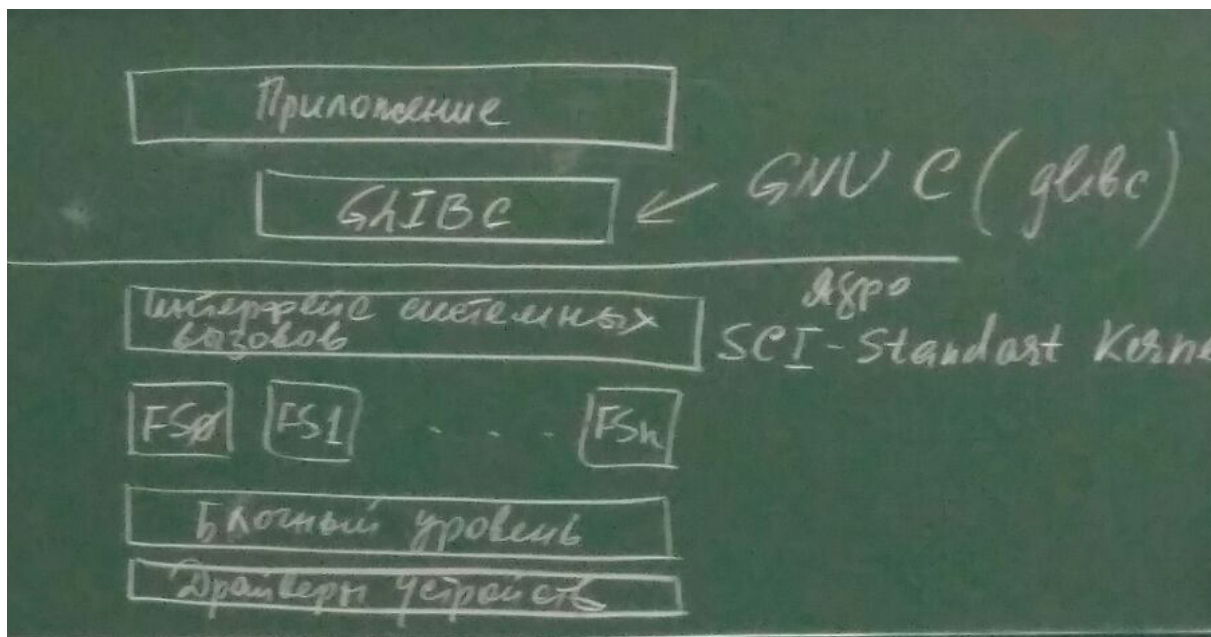 Приложение
GLIBC
GNU C (glibc)
Ядро
Интерфейс системных
вызовов
SCI - Standart Kerne
FS0 FS1 . . . FSn
Блочный уровень
Драйверы устройств